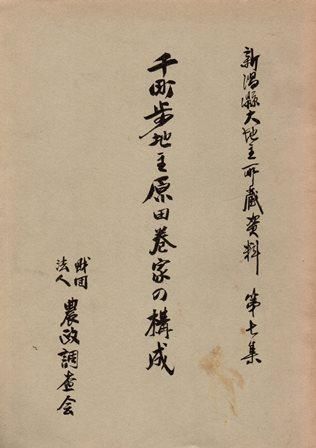 新潟縣大地主所蔵資料 第七集
千町歩地主原田巻家の構成
財団
法人
農政調査会